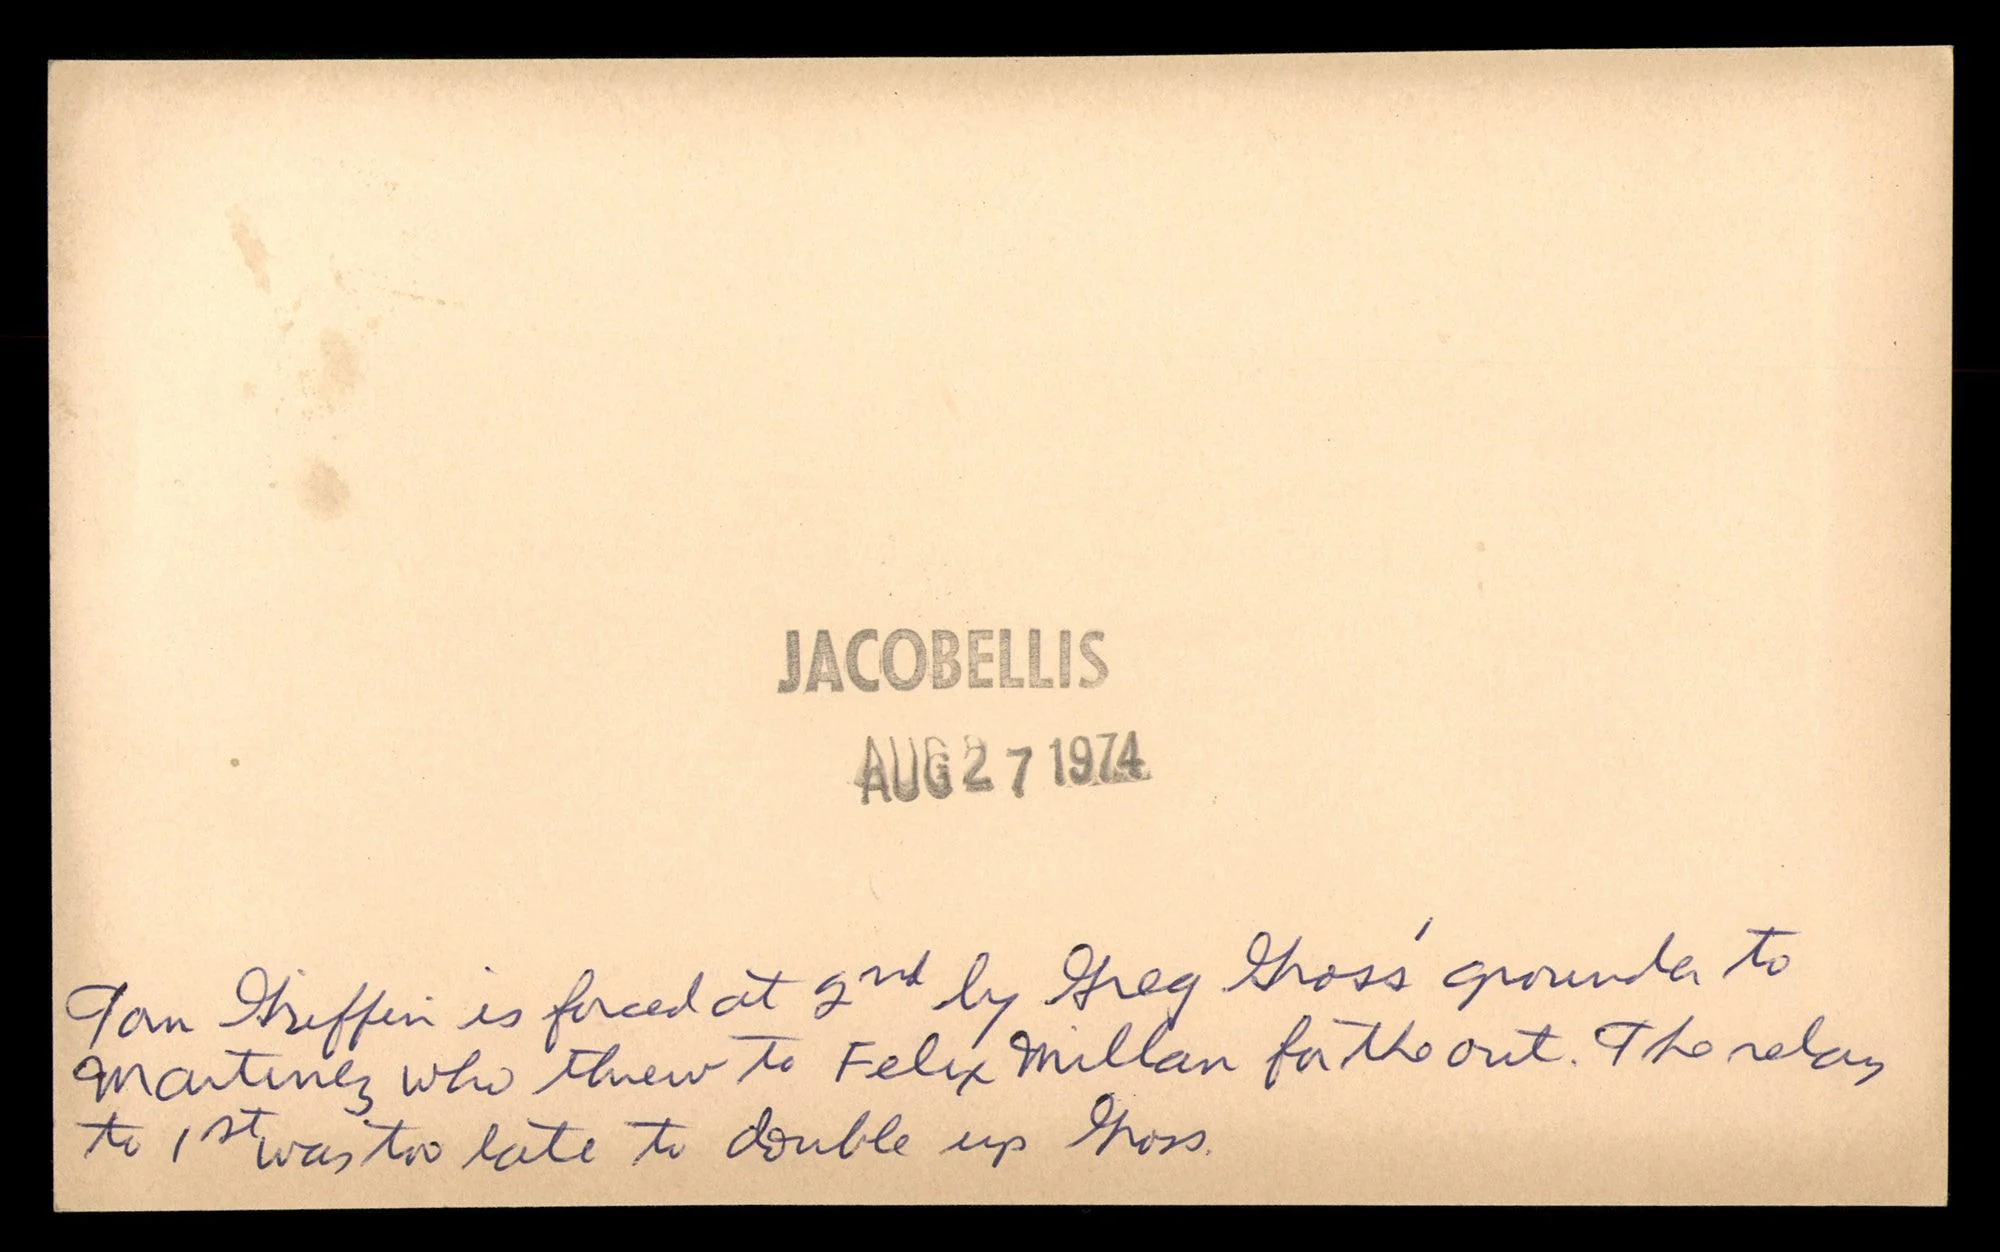 JACOBELLIS
AUG 27 1974
Tom Griffin is forced at 2nd by Greg Gross' grounder to
Martinez who threw to Felix Millan for the out. The relay
to 1st was too late to double up Gross.